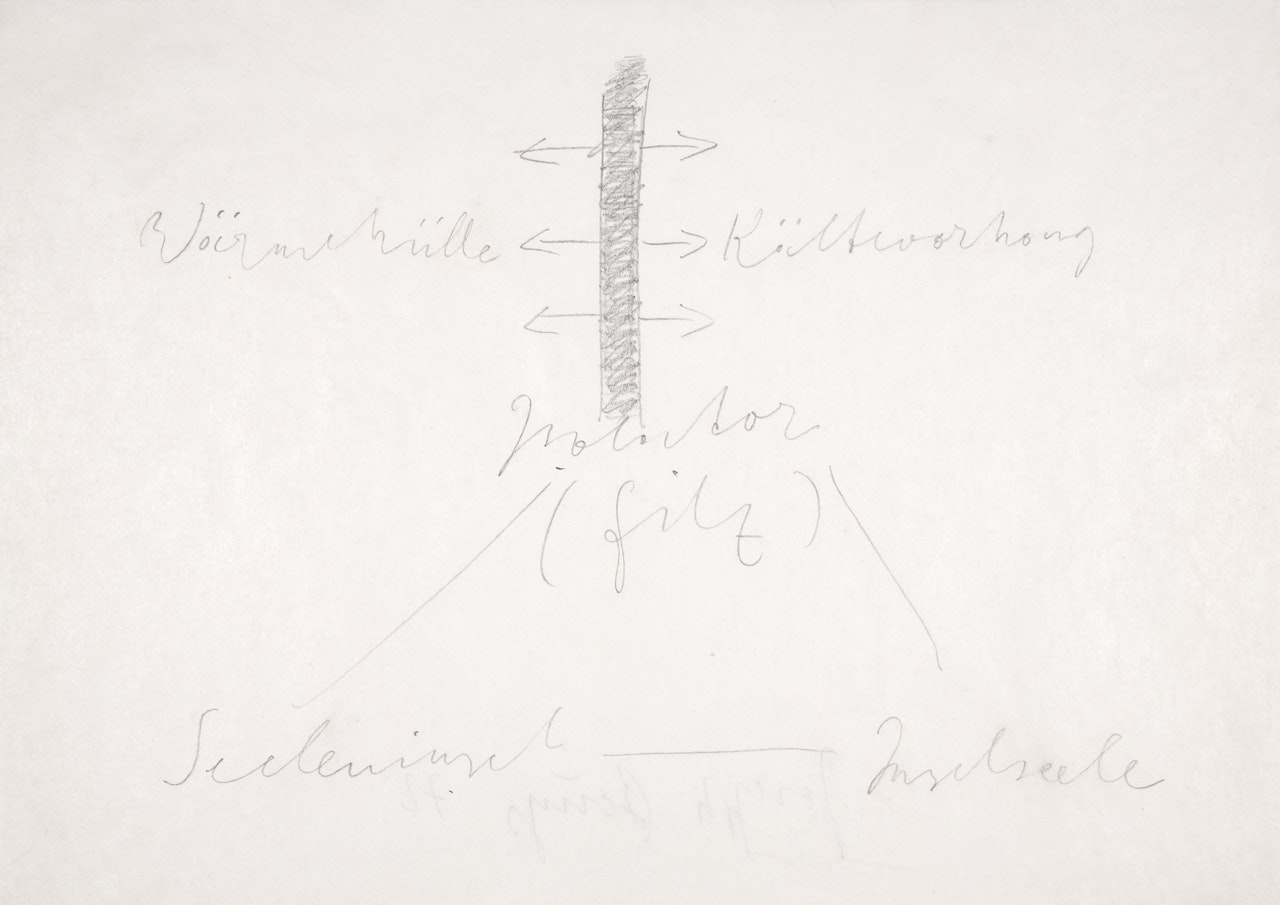 Wärmehülle Kältevorhang
Isolator
(filz)
Seeleninsel Inselseele
Joseph Beuys